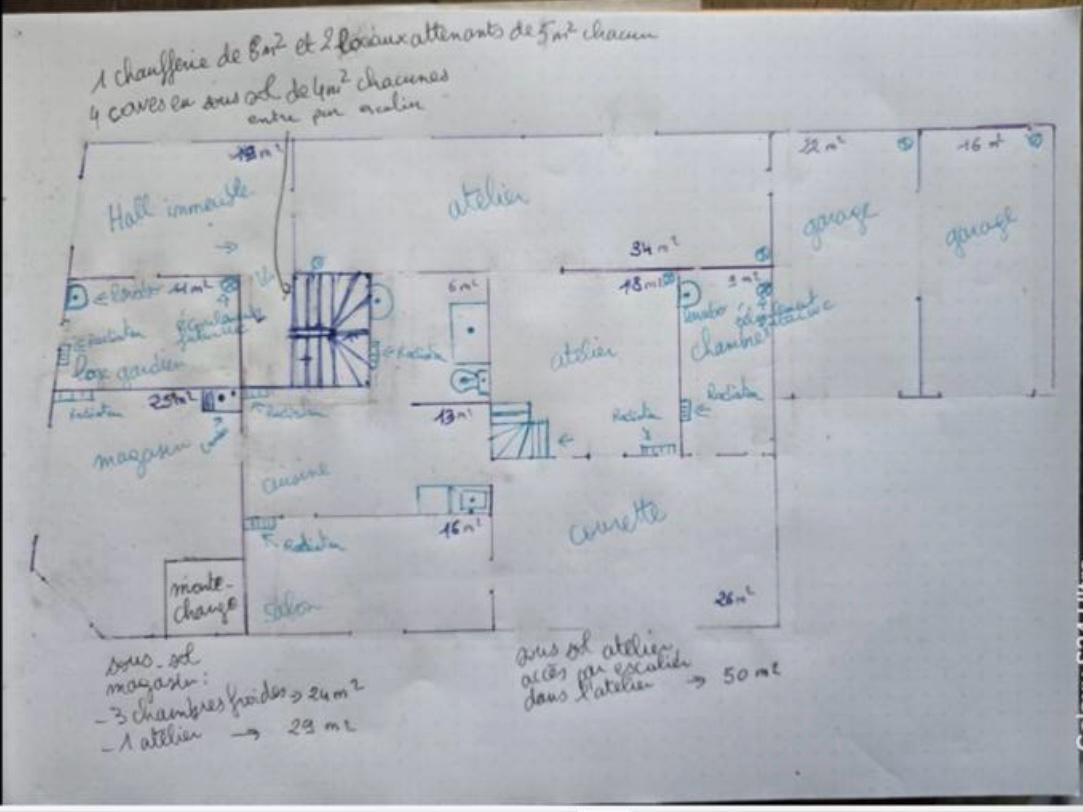 1 chaufferie de 8m² et 2 locaux attenants de 5m² chacun
4 caves en sous sol de 4m² chacunes
entre par escalier
22 m²
16 m²
Hall immeuble
atelier
garage
garage
34 m²
6 m²
18 m²
9 m²
← lavabo
11 m²
lavabo
écoulement
chambre
← Radiateur
← Radiateur
atelier
loge gardien
Radiateur
25 m²
Radiateur
13 m²
Radiateur
← Radiateur
magasin
cuisine
16 m²
courette
Radiateur
monte-
charge
salon
26 m²
sous-sol
magasin :
- 3 chambres froides → 24 m²
- 1 atelier → 29 m²
sous sol atelier
accès par escalier
dans l'atelier → 50 m²